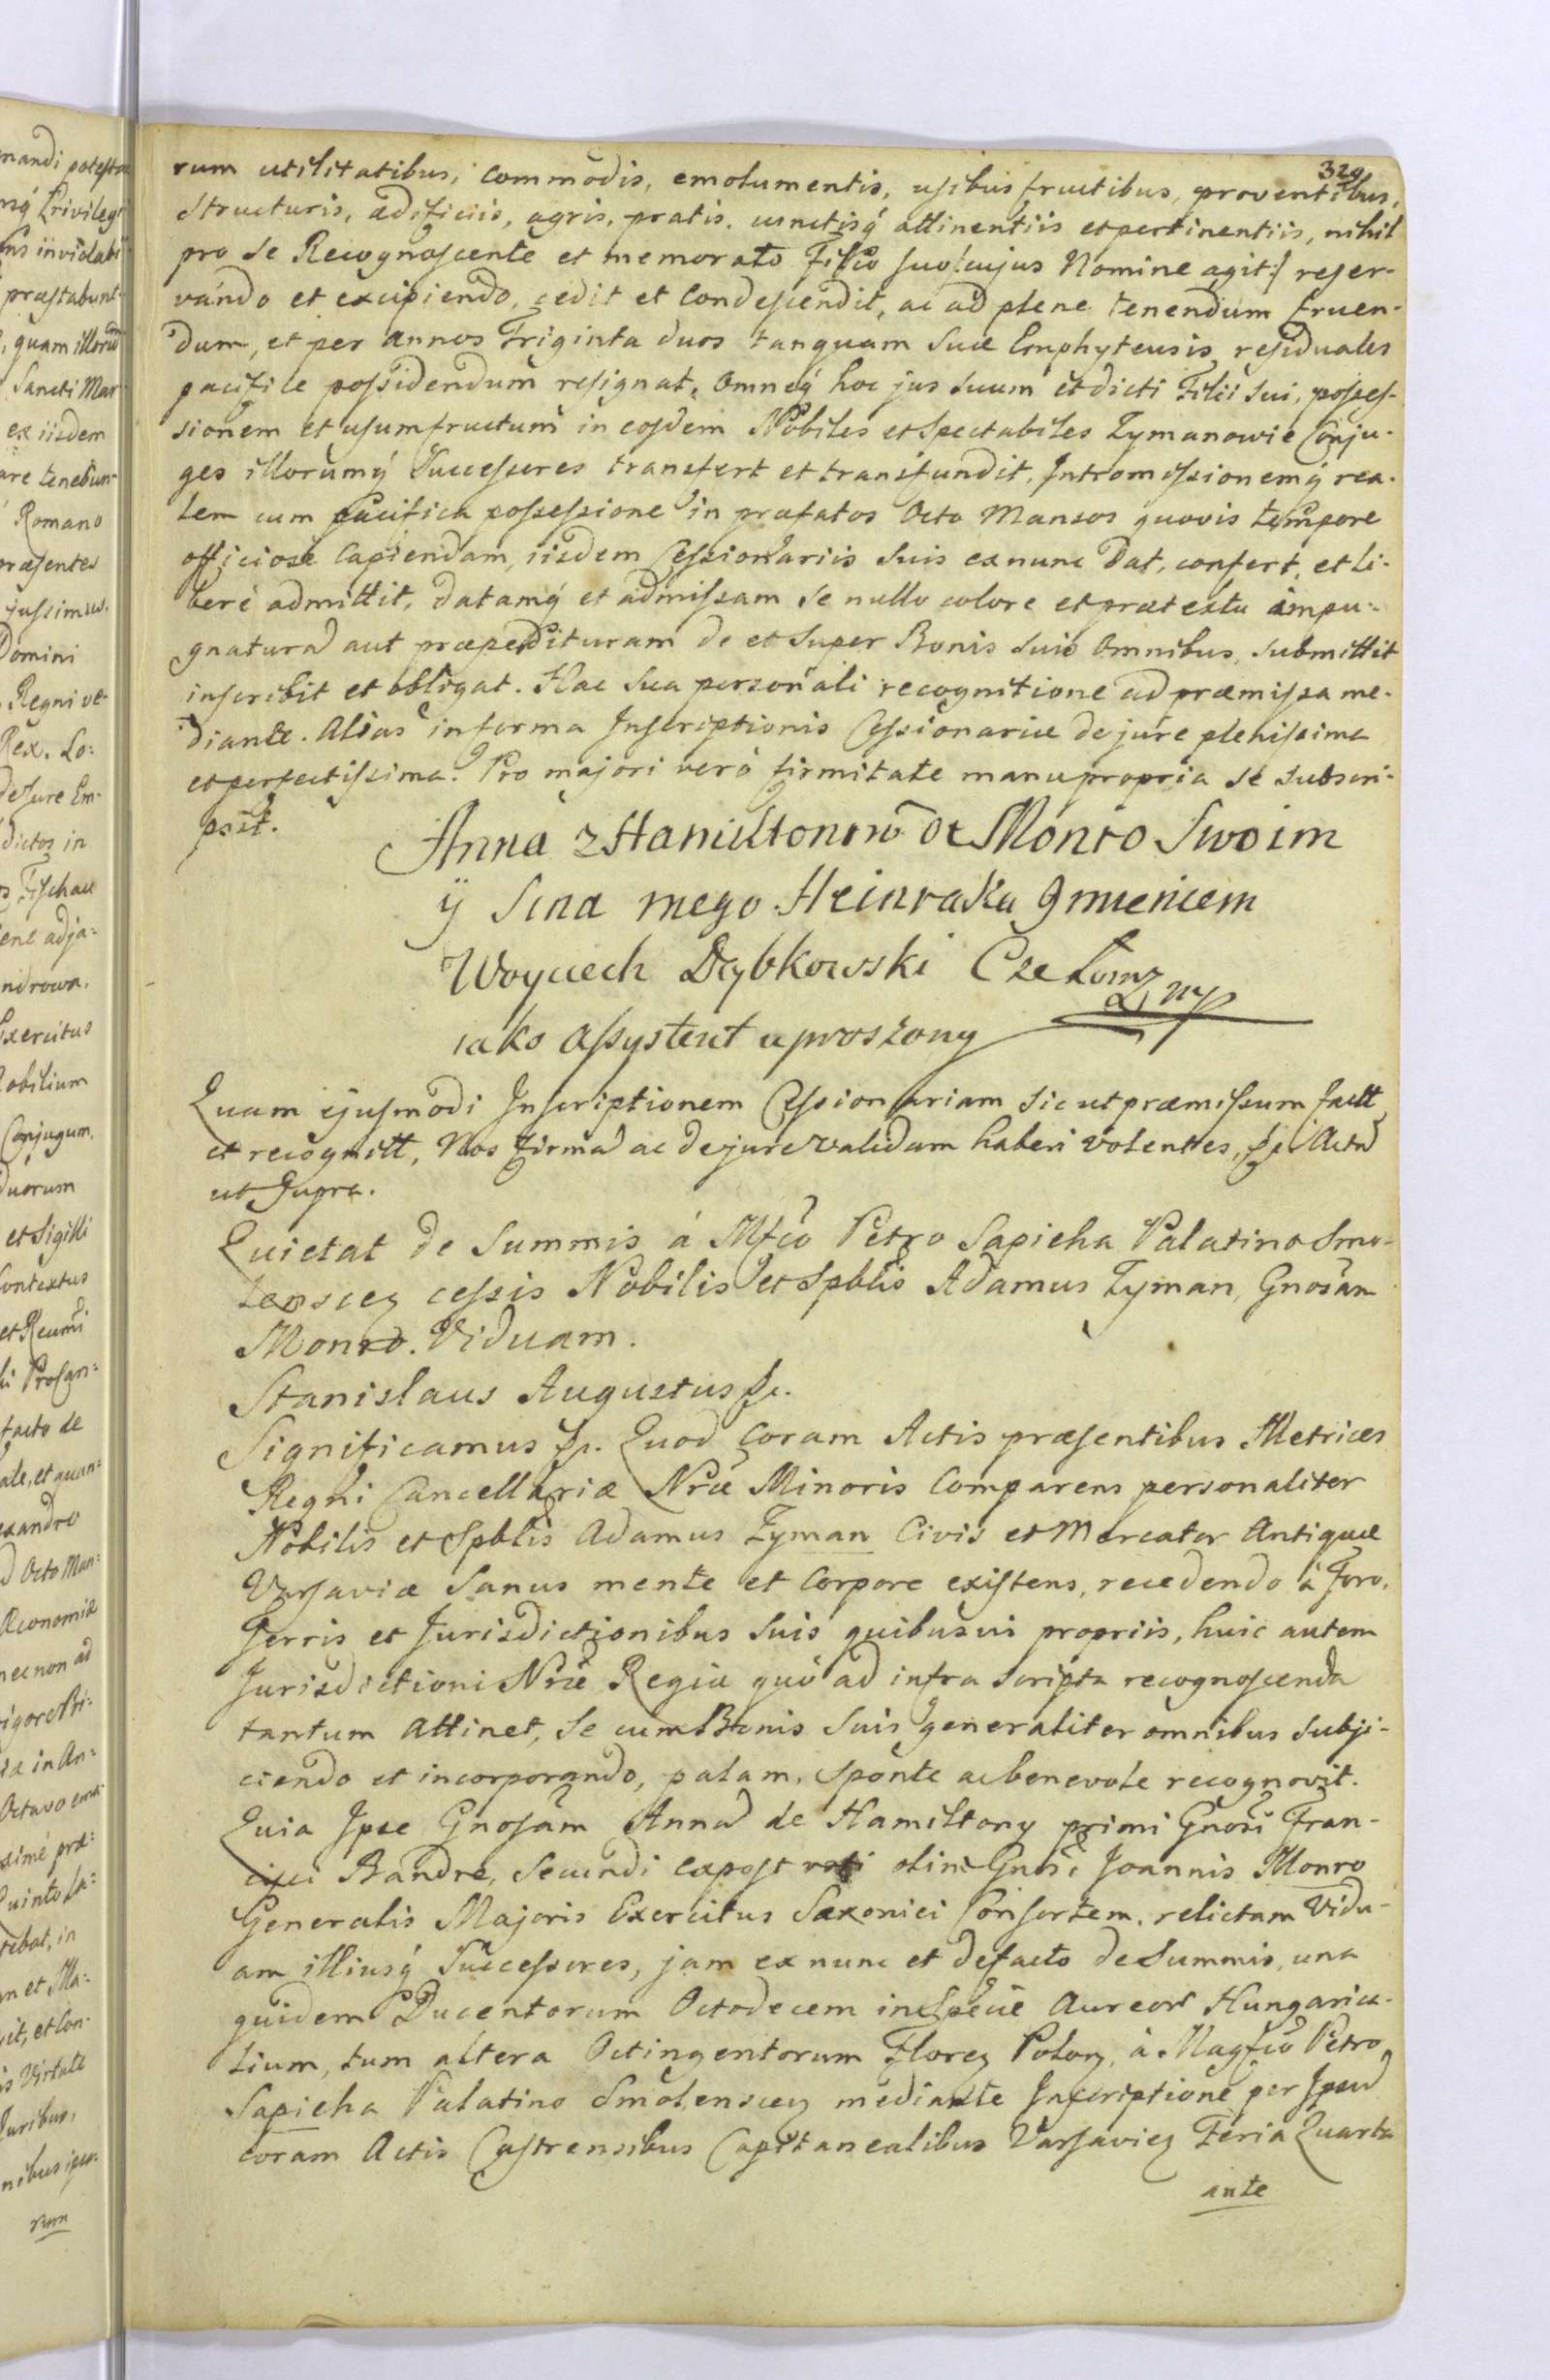 329
rum utilitatibus, commodis, emolumentis, usibus fructibus, proventibus,
structuris, ædificiis, agris, pratis, cunctisq́ attinentiis et pertinentiis, nihil
pro se Recognoscente et memorato Filio suo |: cujus Nomine agit :| reser-
vando et excipiendo, cedit et Condescendit, ac ad plene tenendum fruen-
dum, et per annos Triginta duos tanquam suæ Emphyteusis residuales
pacifice possidendum resignat, Omneq́ hoc jus suum et dicti Filii sui, posses-
sionem et usumfructum in eosdem Nobiles et Spectabiles Zymanowie Conju-
ges illorumq́ Successores transfert et transfundit, Intromissionemq́ rea-
lem cum pacifica possessione in præfatos Octo Mansos quovis tempore
officiose Capiendam, iisdem Cessionariis suis ex nunc Dat, confert, et li-
bere admittit, datamq́ et admissam se nullo colore et prætextu impu-
gnaturã aut præpedituram de et super Bonis suis Omnibus, submittit
inscribit et obligat. Hac sua personali recognitione ad præmissa me-
diante. Alias in forma Inscriptionis Cessionariæ de jure plenissima
et perfectissima. Pro majori verò firmitate manu propria se subscri-
psit.
Anna z Hamiltonow de Monro Swoim
ÿ Sina mego Heinraka Jmieniem
Woyciech Dębkowski Cze Łomz mp
iako assystent uproszony
Quam ejusmodi Inscriptionem Cessionariam sic ut præmissum factt
et recognitt, Nos Firmã ac de jure validam haberi volentes, &c Actũ
ut Supra.
Quietat de Summis á Mfco Petro Sapieha Palatino Smo-
lenscen cessis Nobilis et Spblis Adamus Zyman, Gnosam
Monro. Viduam.
Stanislaus Augustus &c.
Significamus &c. Quod Coram Actis præsentibus Metrices
Regni Cancellariæ Nræ Minoris Comparens personaliter
Nobilis et Spblis Adamus Zyman Civis et Mercator Antiquæ
Varsaviæ Sanus mente et Corpore existens, recedendo à Foro,
Terris et Jurisdictionibus suis quibusvis propriis, huic autem
Jurisdictioni Nræ Regiæ quò ad infra scripta recognoscenda
tantum attinet, se cum Bonis suis generaliter omnibus subji-
ciendo et incorporando, palam, sponte ac benevole recognovit.
Quia Ipse Gnosam Annã de Hamiltony primi Gnosi Fran-
cisci Bandre, Secundi expost voti olim Gnosi Joannis Monro
Generalis Majoris Exercitus Saxonici Consortem, relictam Vidu-
am illiusq́ Successores, jam ex nunc et de facto de Summis, una
quidem Ducentorum Octodecem in Specie Aureorũ Hungarica-
lium, tum altera Octingentorum Floren Polon, à Magfco Petro
Sapieha Palatino Smolenscen mediante Inscriptione per Ipsũ
coram Actis Castrensibus Capitanealibus Varsavien Feria Quarta
ante